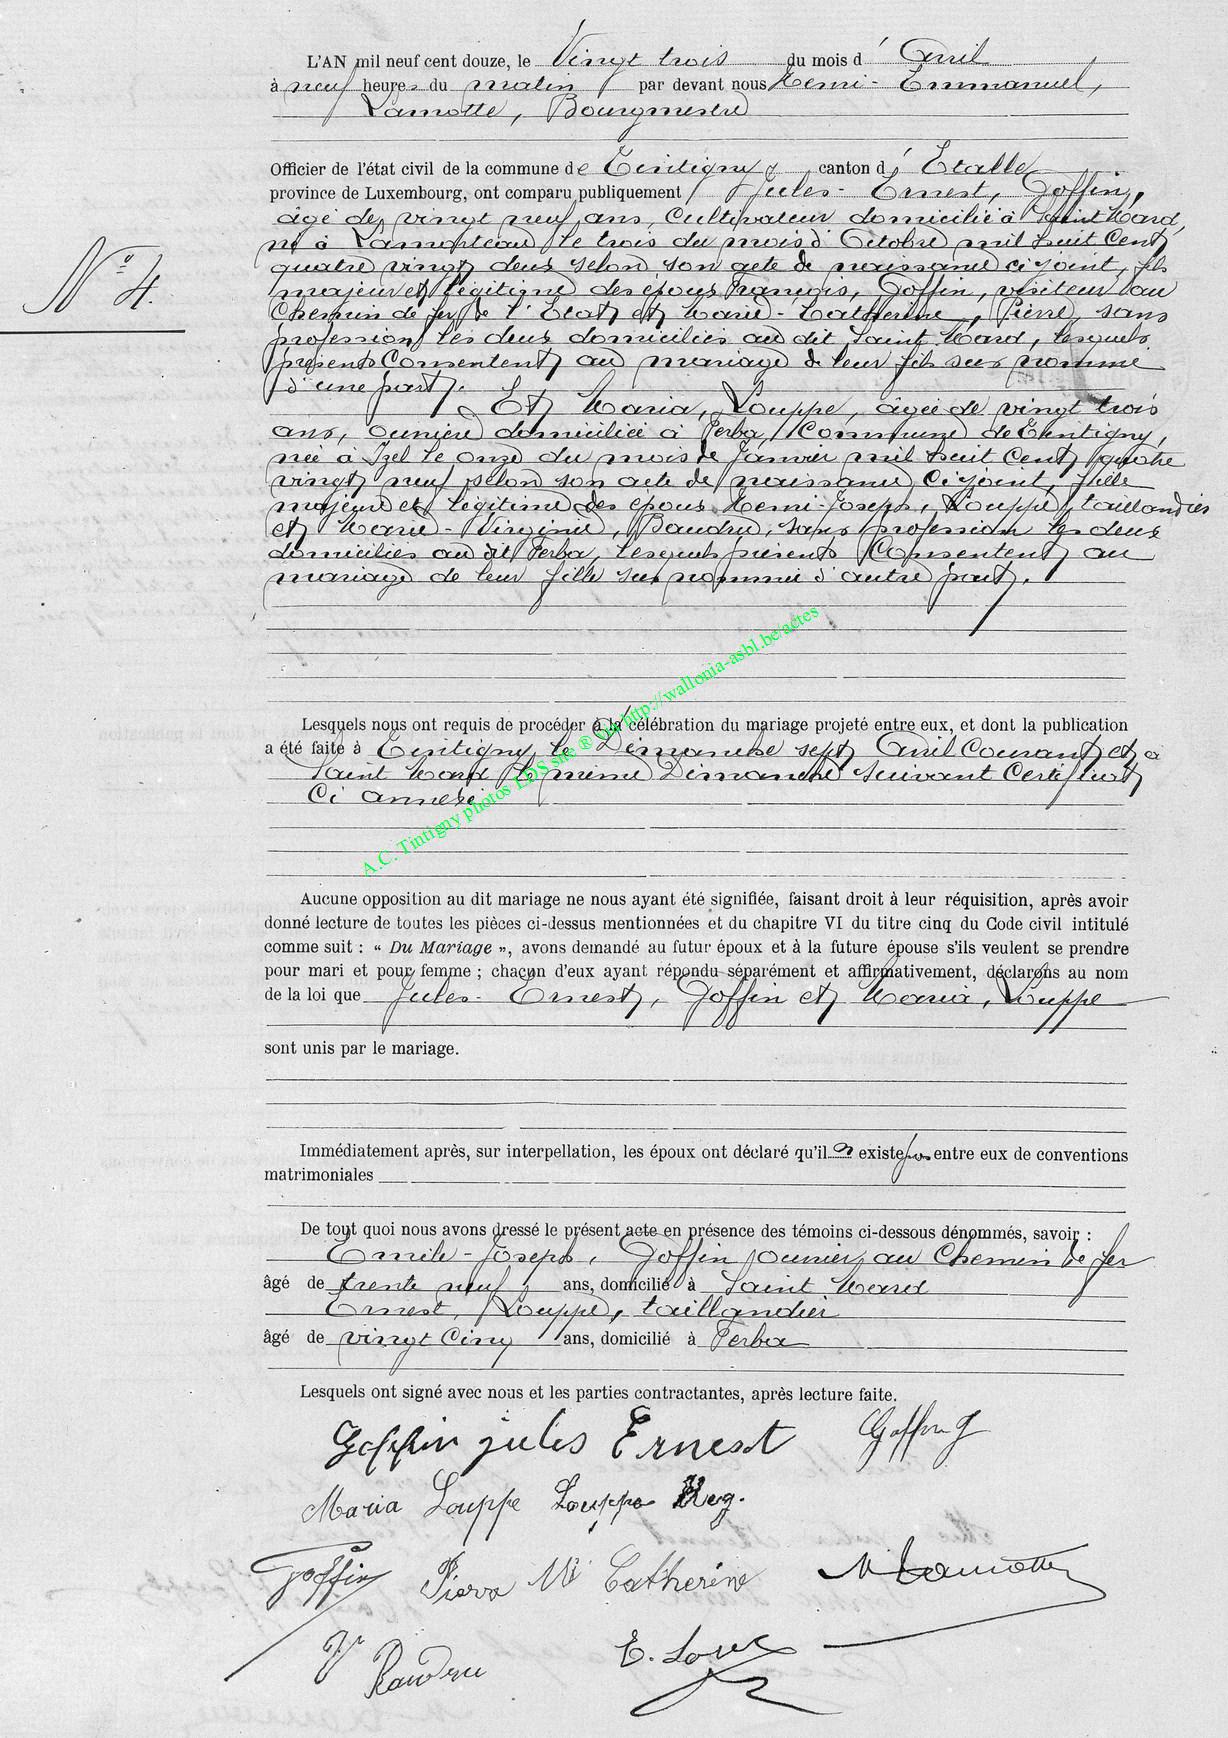 L'AN mil neuf cent douze, le Vingt trois du mois d' Avril
à neuf heures du matin par devant nous Henri-Emmanuel,
Lamotte, Bourgmestre
Officier de l'état civil de la commune de Tintigny canton d' Etalle
province de Luxembourg, ont comparu publiquement Jules-Ernest, Goffin,
âgé de vingt neuf ans, Cultivateur domicilié à Saint Mard,
né à Lamorteau le trois du mois d'Octobre mil huit Cent
quatre vingt deux selon son acte de naissance ci joint, fils
majeur et légitime des époux François, Goffin, visiteur au
Chemin de fer de l'Etat et Marie-Catherine, Pierre, sans
profession les deux domiciliés au dit Saint Mard, lesquels
présents Consentent au mariage de leur fils sus nommé
d'une part.
N° 4.
Et Maria, Louppe, âgée de vingt trois
ans, ouvrière domiciliée à Ferba, Commune de Tintigny,
née à Izel le onze du mois de Janvier mil huit Cent quatre
vingt neuf selon son acte de naissance Ci joint, fille
majeure et légitime des époux Henri-Joseph, Louppe, taillandier
et Marie-Virginie, Baudru, sans profession les deux
domiciliés au dit Ferba, lesquels présents Consentent au
mariage de leur fille sus nommée d'autre part.
Lesquels nous ont requis de procéder à la célébration du mariage projeté entre eux, et dont la publication
a été faite à Tintigny le Dimanche sept Avril Courant et à
Saint Mard le même Dimanche suivant Certificat
Ci annexé
A.C. Tintigny photos LDS site ® via http://wallonia-asbl.be/actes
Aucune opposition au dit mariage ne nous ayant été signifiée, faisant droit à leur réquisition, après avoir
donné lecture de toutes les pièces ci-dessus mentionnées et du chapitre VI du titre cinq du Code civil intitulé
comme suit : « Du Mariage », avons demandé au futur époux et à la future épouse s'ils veulent se prendre
pour mari et pour femme ; chacun d'eux ayant répondu séparément et affirmativement, déclarons au nom
de la loi que Jules-Ernest, Goffin et Maria, Louppe
sont unis par le mariage.
Immédiatement après, sur interpellation, les époux ont déclaré qu'il n existe pas entre eux de conventions
matrimoniales
De tout quoi nous avons dressé le présent acte en présence des témoins ci-dessous dénommés, savoir :
Emile-Joseph, Goffin ouvrier au Chemin de fer
âgé de trente neuf ans, domicilié à Saint Mard
Ernest, Louppe, taillandier
âgé de vingt Cinq ans, domicilié à Ferba
Lesquels ont signé avec nous et les parties contractantes, après lecture faite.
Goffin jules Ernest Goffin J
Maria Louppe Louppe
Goffin Pierre Mie Catherine Lamotte
Baudru E. Loup